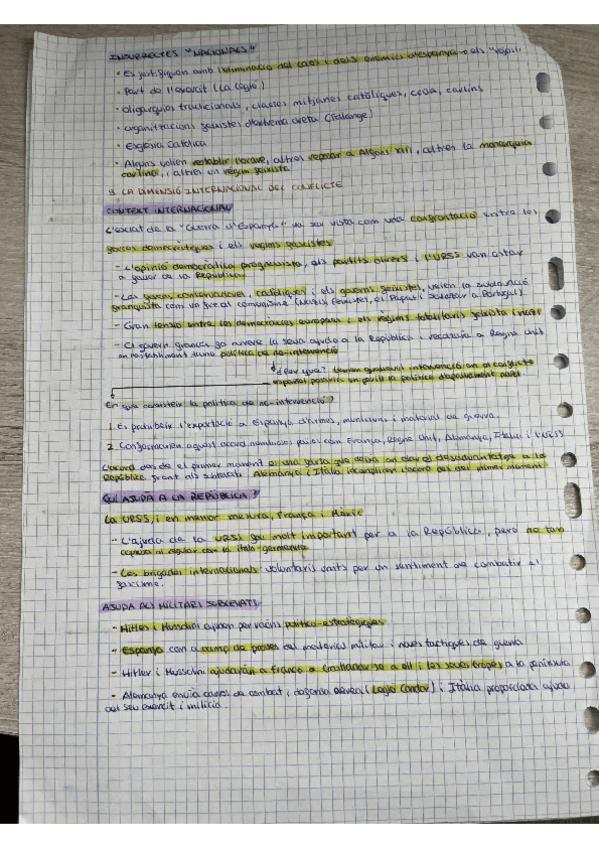 INSURRECTES "NACIONALS"
· Es justifiquen amb l'eliminació del caos i dels enemics d'espanya → els "rojos".
· Part de l'exèrcit (La Legió)
· oligarquies tradicionals, classes mitjanes catòliques, CEDA, carlins
· organitzacions feixistes d'extrema dreta (Falange)
· Església Catòlica
· Alguns volien restablir l'ordre, altres reposar a Alfons XIII, altres la monarquia
carlina, i altres un règim feixista
LA DIMENSIÓ INTERNACIONAL DEL CONFLICTE
CONTEXT INTERNACIONAL
L'esclat de la "Guerra d'Espanya" va ser vista com una confrontació entre les
forces democràtiques i els règims feixistes
- L'opinió democràtica progressista, els partits obrers i l'URSS van estar
a favor de la República
- Les forces conservadores, catòliques i els governs feixistes, veien la sublevació
franquista com un fre al comunisme (
- Gran tensió entre les democràcies europees i els règims totalitaris feixista i nazi
- El govern francès
un política de no-intervenció
¿Per què?
espanyol
En què consisteix la política de no-intervenció?
1. Es prohibeix l'exportació a Espanya d'armes, municions i material de guerra.
2. acord nombrosos països com França, Regne Unit, Alemanya, Itàlia i l'URSS
L'acord des de el primer moment que deixa en clar el desavantatge a la
República Alemanya i Itàlia incompliren l'acord des del primer moment
QUI AJUDA A LA REPÚBLICA?
La URSS, i en menor mesura, França i Mèxic
- L'ajuda de la URSS fou molt important per a la República, però no tan
copiosa ni regular com la italo-germànica
- Les brigades internacionals: voluntaris units per un sentiment de combatir el
feixisme.
AJUDA ALS MILITARS SUBLEVATS
- Hitler i Mussolini ajuden per raons político-estratègiques
- Espanya com a camp de proves del material militar i noves tàctiques de guerra
- Hitler i Mussolini ajudaran a Franco a traslladar-se a ell i les seues tropes a la península
- Alemanya envia carros de combat i (Legió Còndor) i Itàlia proporciona ajuda
del seu exèrcit i milícia.